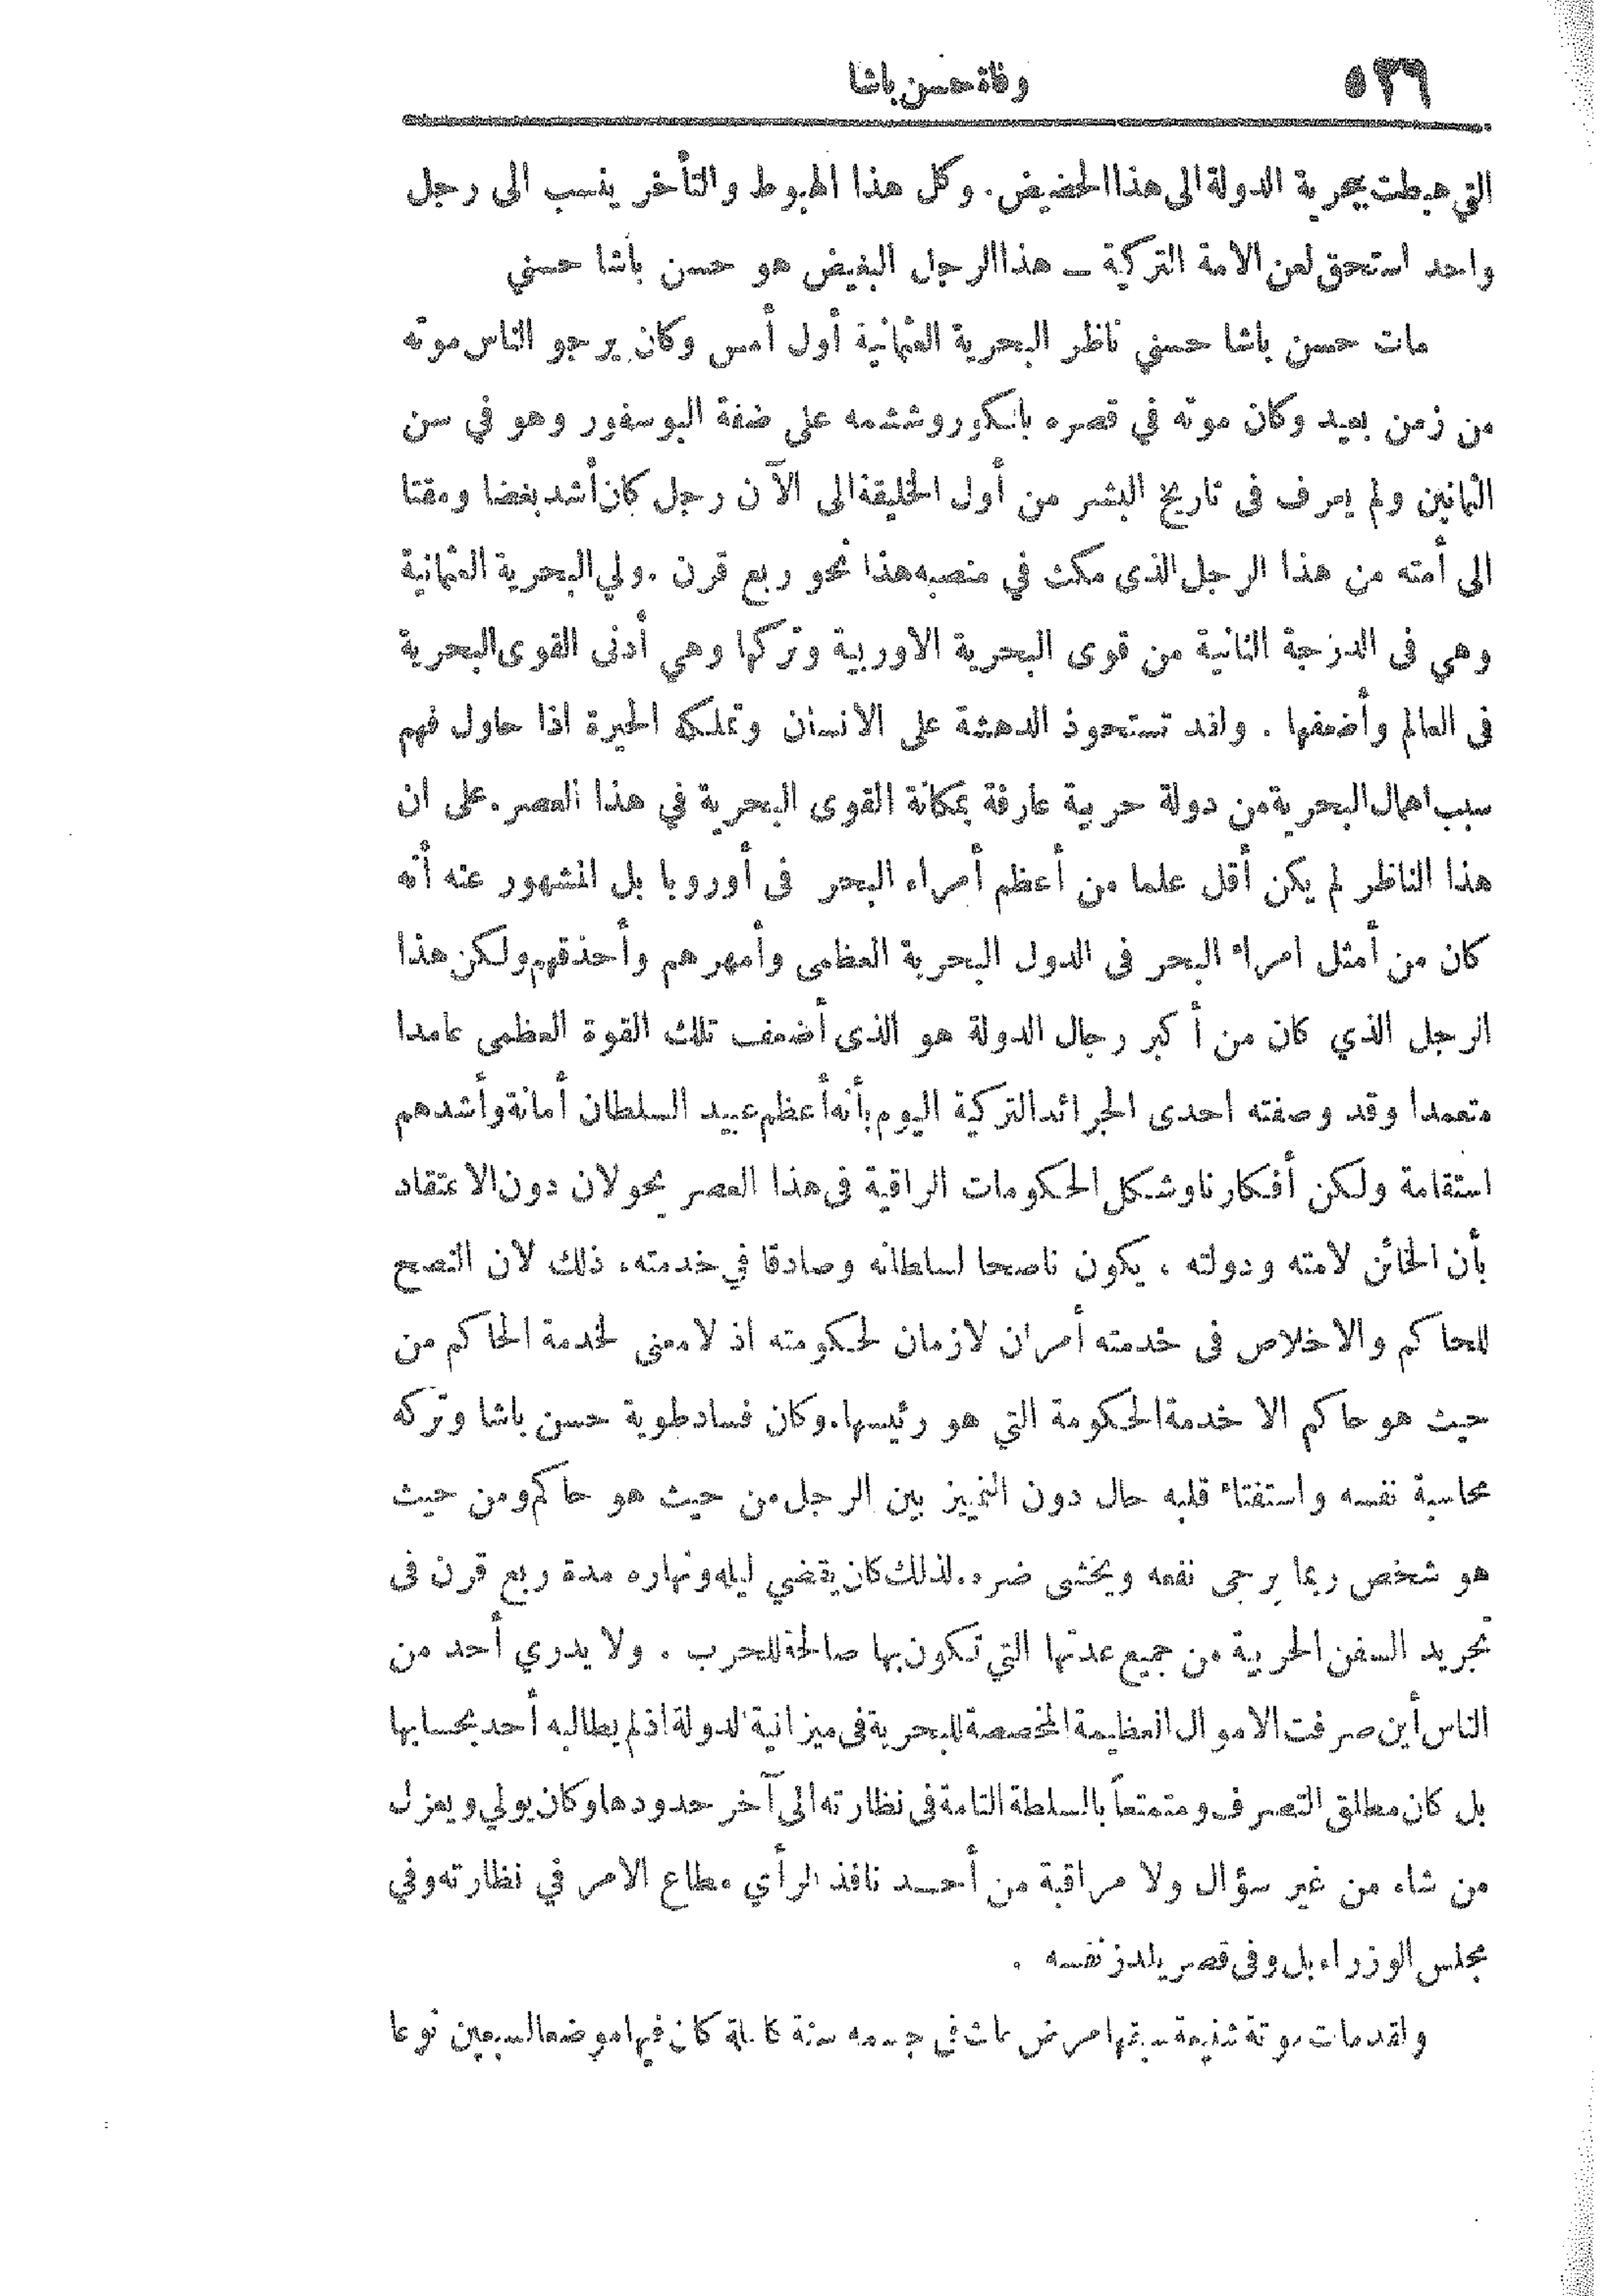 ٥٣٦ وفاة حسن باشا
التي هبطت ببحرية الدولة الى هذا الحضيض. وكل هذا الهبوط والتأخر ينسب الى رجل
واحد استحق لعن الامة التركية ــ هذا الرجل البغيض هو حسن باشا حسني
مات حسن باشا حسني ناظر البحرية العثمانية أول أمس وكان يرجو الناس موته
من زمن بعيد وكان موته في قصره على ضفة البوسفور وهو في سن
الثمانين ولم يعرف فى تاريخ البشر من أول الخليقة الى الآن رجل كان أشد بغضا ومقتا
الى أمته من هذا الرجل الذى مكث في منصبه هذا نحو ربع قرن . ولي البحرية العثمانية
وهي فى الدرجة الثانية من قوى البحرية الاوربية وتركها وهي أدنى القوى البحرية
فى العالم وأضعفها . ولقد تستحوذ الدهشة على الانسان وتملكه الحيرة اذا حاول فهم
سبب اهمال البحرية من دولة حربية عارفة بمكانة القوى البحرية في هذا العصر. على ان
هذا الناظر لم يكن أقل علما من أعظم أمراء البحر فى أوروبا بل المشهور عنه أنه
كان من أمثل امراء البحر فى الدول البحرية العظمى وأمهرهم وأحذقهم ولكن هذا
الرجل الذي كان من أكبر رجال الدولة هو الذى أضعف تلك القوة العظمى عامدا
متعمدا وقد وصفته احدى الجرائد التركية اليوم بأنه أعظم عبيد السلطان أمانة وأشدهم
استقامة ولكن أفكارنا وشكل الحكومات الراقية فى هذا العصر يحولان دون الاعتقاد
بأن الخائن لامته ودولته ، يكون ناصحا لسلطانه وصادقا في خدمته، ذلك لان النصح
للحاكم والاخلاص فى خدمته أمران لازمان لحكومته اذ لا معنى لخدمة الحاكم من
حيث هو حاكم الا خدمة الحكومة التي هو رئيسها. وكان فساد طوية حسن باشا وتركه
محاسبة نفسه واستفتاء قلبه حال دون التمييز بين الرجل من حيث هو حاكم ومن حيث
هو شخص ربما يرجى نفعه ويخشى ضره. لذلك كان يقضي ليله ونهاره مدة ربع قرن فى
تجريد السفن الحربية من جميع عدتها التي تكون بها صالحة للحرب . ولا يدري أحد من
الناس أين صرفت الاموال العظيمة المخصصة للبحرية فى ميزانية الدولة اذ لم يطالبه أحد بحسابها
بل كان مطلق التصرف ومتمتعاً بالسلطة التامة فى نظارته الى آخر حدودها وكان يولي ويعزل
من شاء من غير سؤال ولا مراقبة من أحد نافذ الرأي مطاع الامر في نظارته وفي
مجلس الوزراء بل وفى قصر يلدز نفسه .
ولقد مات موتة شنيعة سبقها مرض عاث فى جسمه سنة كاملة كان فيها موضعا لسبعين نوعا